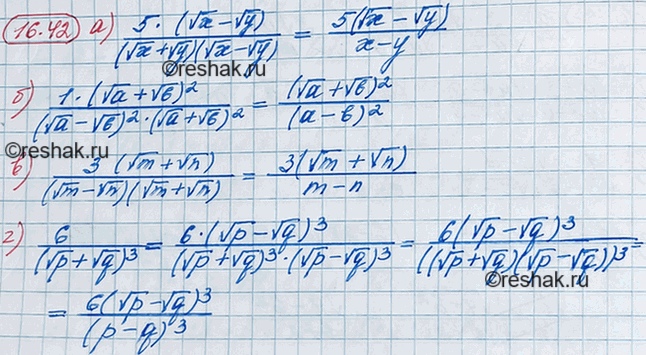 16.42 а) 5·(√x−√y)/(√x+√y)(√x−√y) = 5(√x−√y)/x−y
©reshak.ru
б) 1·(√a+√б)²/(√a−√б)²·(√a+√б)² = (√a+√б)²/(a−б)²
©reshak.ru
в) 3(√m+√n)/(√m−√n)(√m+√n) = 3(√m+√n)/m−n
г) 6/(√p+√q)³ = 6·(√p−√q)³/(√p+√q)³·(√p−√q)³ = 6(√p−√q)³/((√p+√q)(√p−√q))³ =
©reshak.ru
= 6(√p−√q)³/(p−q)³